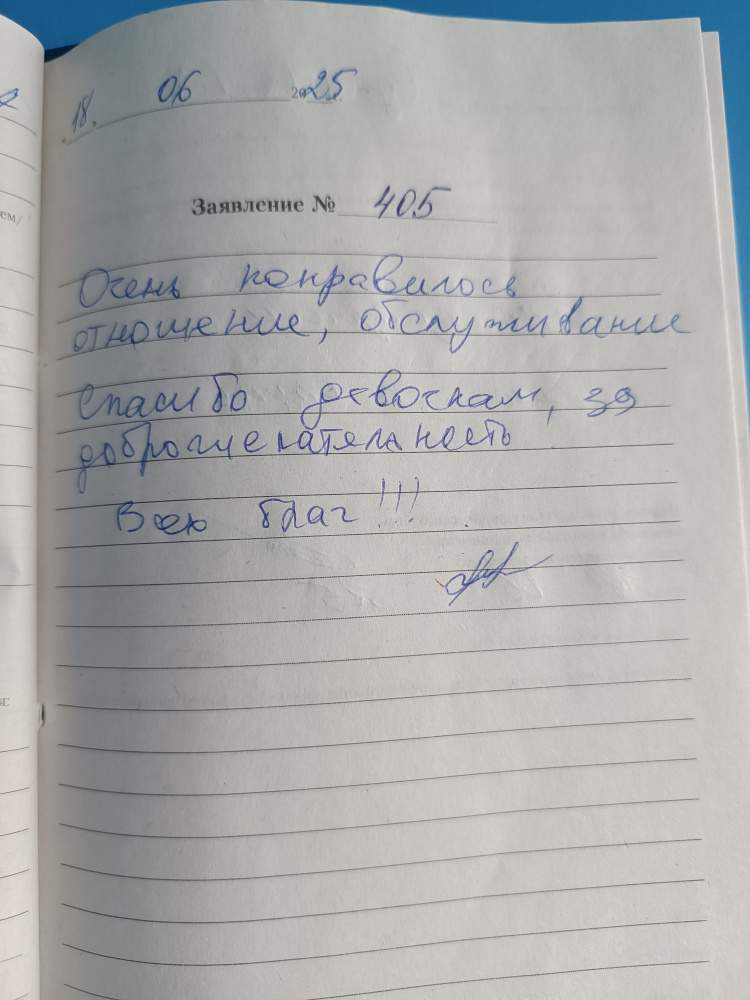 18. 06 2025
Заявление № 405
Очень понравилось
отношение, обслуживание
Спасибо девочкам, за
доброжелательность
Всех благ!!!
ем/